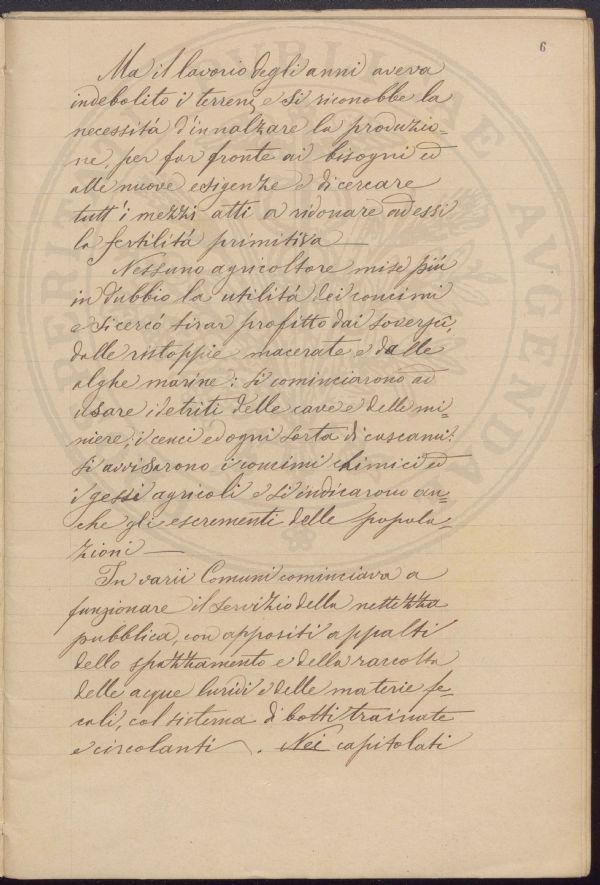 6
Ma il lavorio degli anni aveva
indebolito i terreni, e si riconobbe la
necessitá d'innalzare la produzio-
ne, per far fronte ai bisogni ed
alle nuove esigenze e di cercare
tutt'i mezzi atti a ridonare ad essi
la fertilitá primitiva —
Nessuno agricoltore mise piú
in dubbio la utilitá dei concimi
e si cercó tirar profitto dai soversci,
dalle ristoppie macerate e dalle
alghe marine: si cominciarono ad
usare i detriti delle cave e delle mi-
niere, i cenci ed ogni sorta di cascami:
si avvisarono i concimi chimici ed
i gessi agricoli e si indicarono an-
che gli escrementi delle popola-
zioni —
In varii Comuni cominciava a
funzionare il servizio della nettezza
pubblica, con appositi appalti
dello spazzamento e della raccolta
delle acque luridi e delle materie fe-
cali, col sistema di botti trainate
e circolanti . Nei capitolati